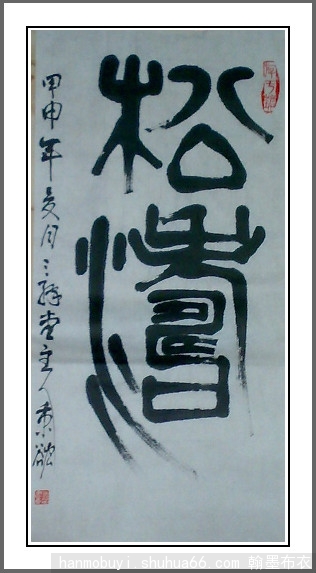 松濤
甲申年夏月三堂主人
hanmobuyi.shuhua66.com 翰墨布衣